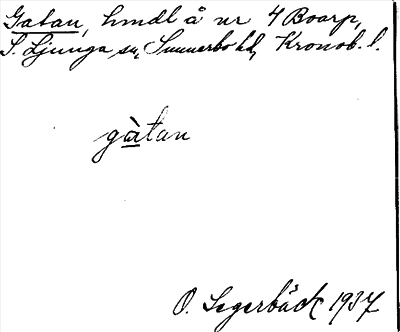 Gatan, hmdl å nr 4 Boarp,
S. Ljunga sn, Sunnerbo hd, Kronob. l.
gàtan
O. Segerbäck 1937